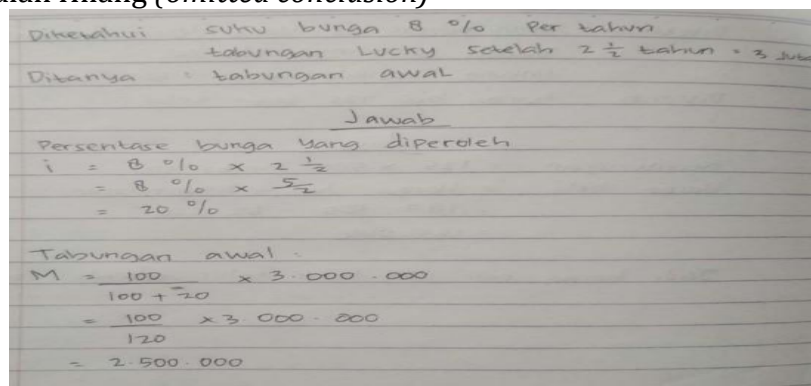 (omitted conclusion)
Diketahui suku bunga 8 % Per tahun
tabungan Lucky setelah 2 1/2 tahun = 3 juta
Ditanya : tabungan awal
Jawab
Persentase bunga yang diperoleh
i = 8 % × 2 1/2
= 8 % × 5/2
= 20 %
Tabungan awal :
M = 100/100 + 20 × 3.000.000
= 100/120 × 3.000.000
= 2.500.000